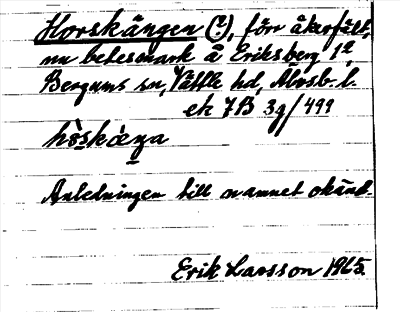 Horskängen (?), förr åkerfält,
nu betesmark å Eriksberg 1²,
Bergums sn, Vättle hd, Älvsb. l.
ek 7B 3g/499
hòskæŋa
Anledningen till namnet okänd.
Erik Larsson 1965.